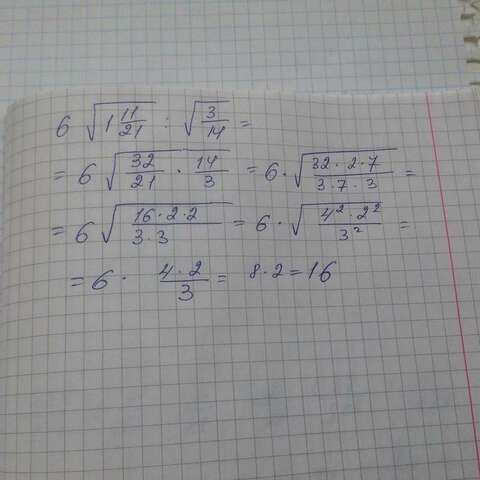 6 √(1 11/21) : √(3/14) =
= 6 √(32/21 · 14/3) = 6 · √((32 · 2 · 7)/(3 · 7 · 3)) =
= 6 √((16 · 2 · 2)/(3 · 3)) = 6 · √((4² · 2²)/3²) =
= 6 · (4 · 2)/3 = 8 · 2 = 16